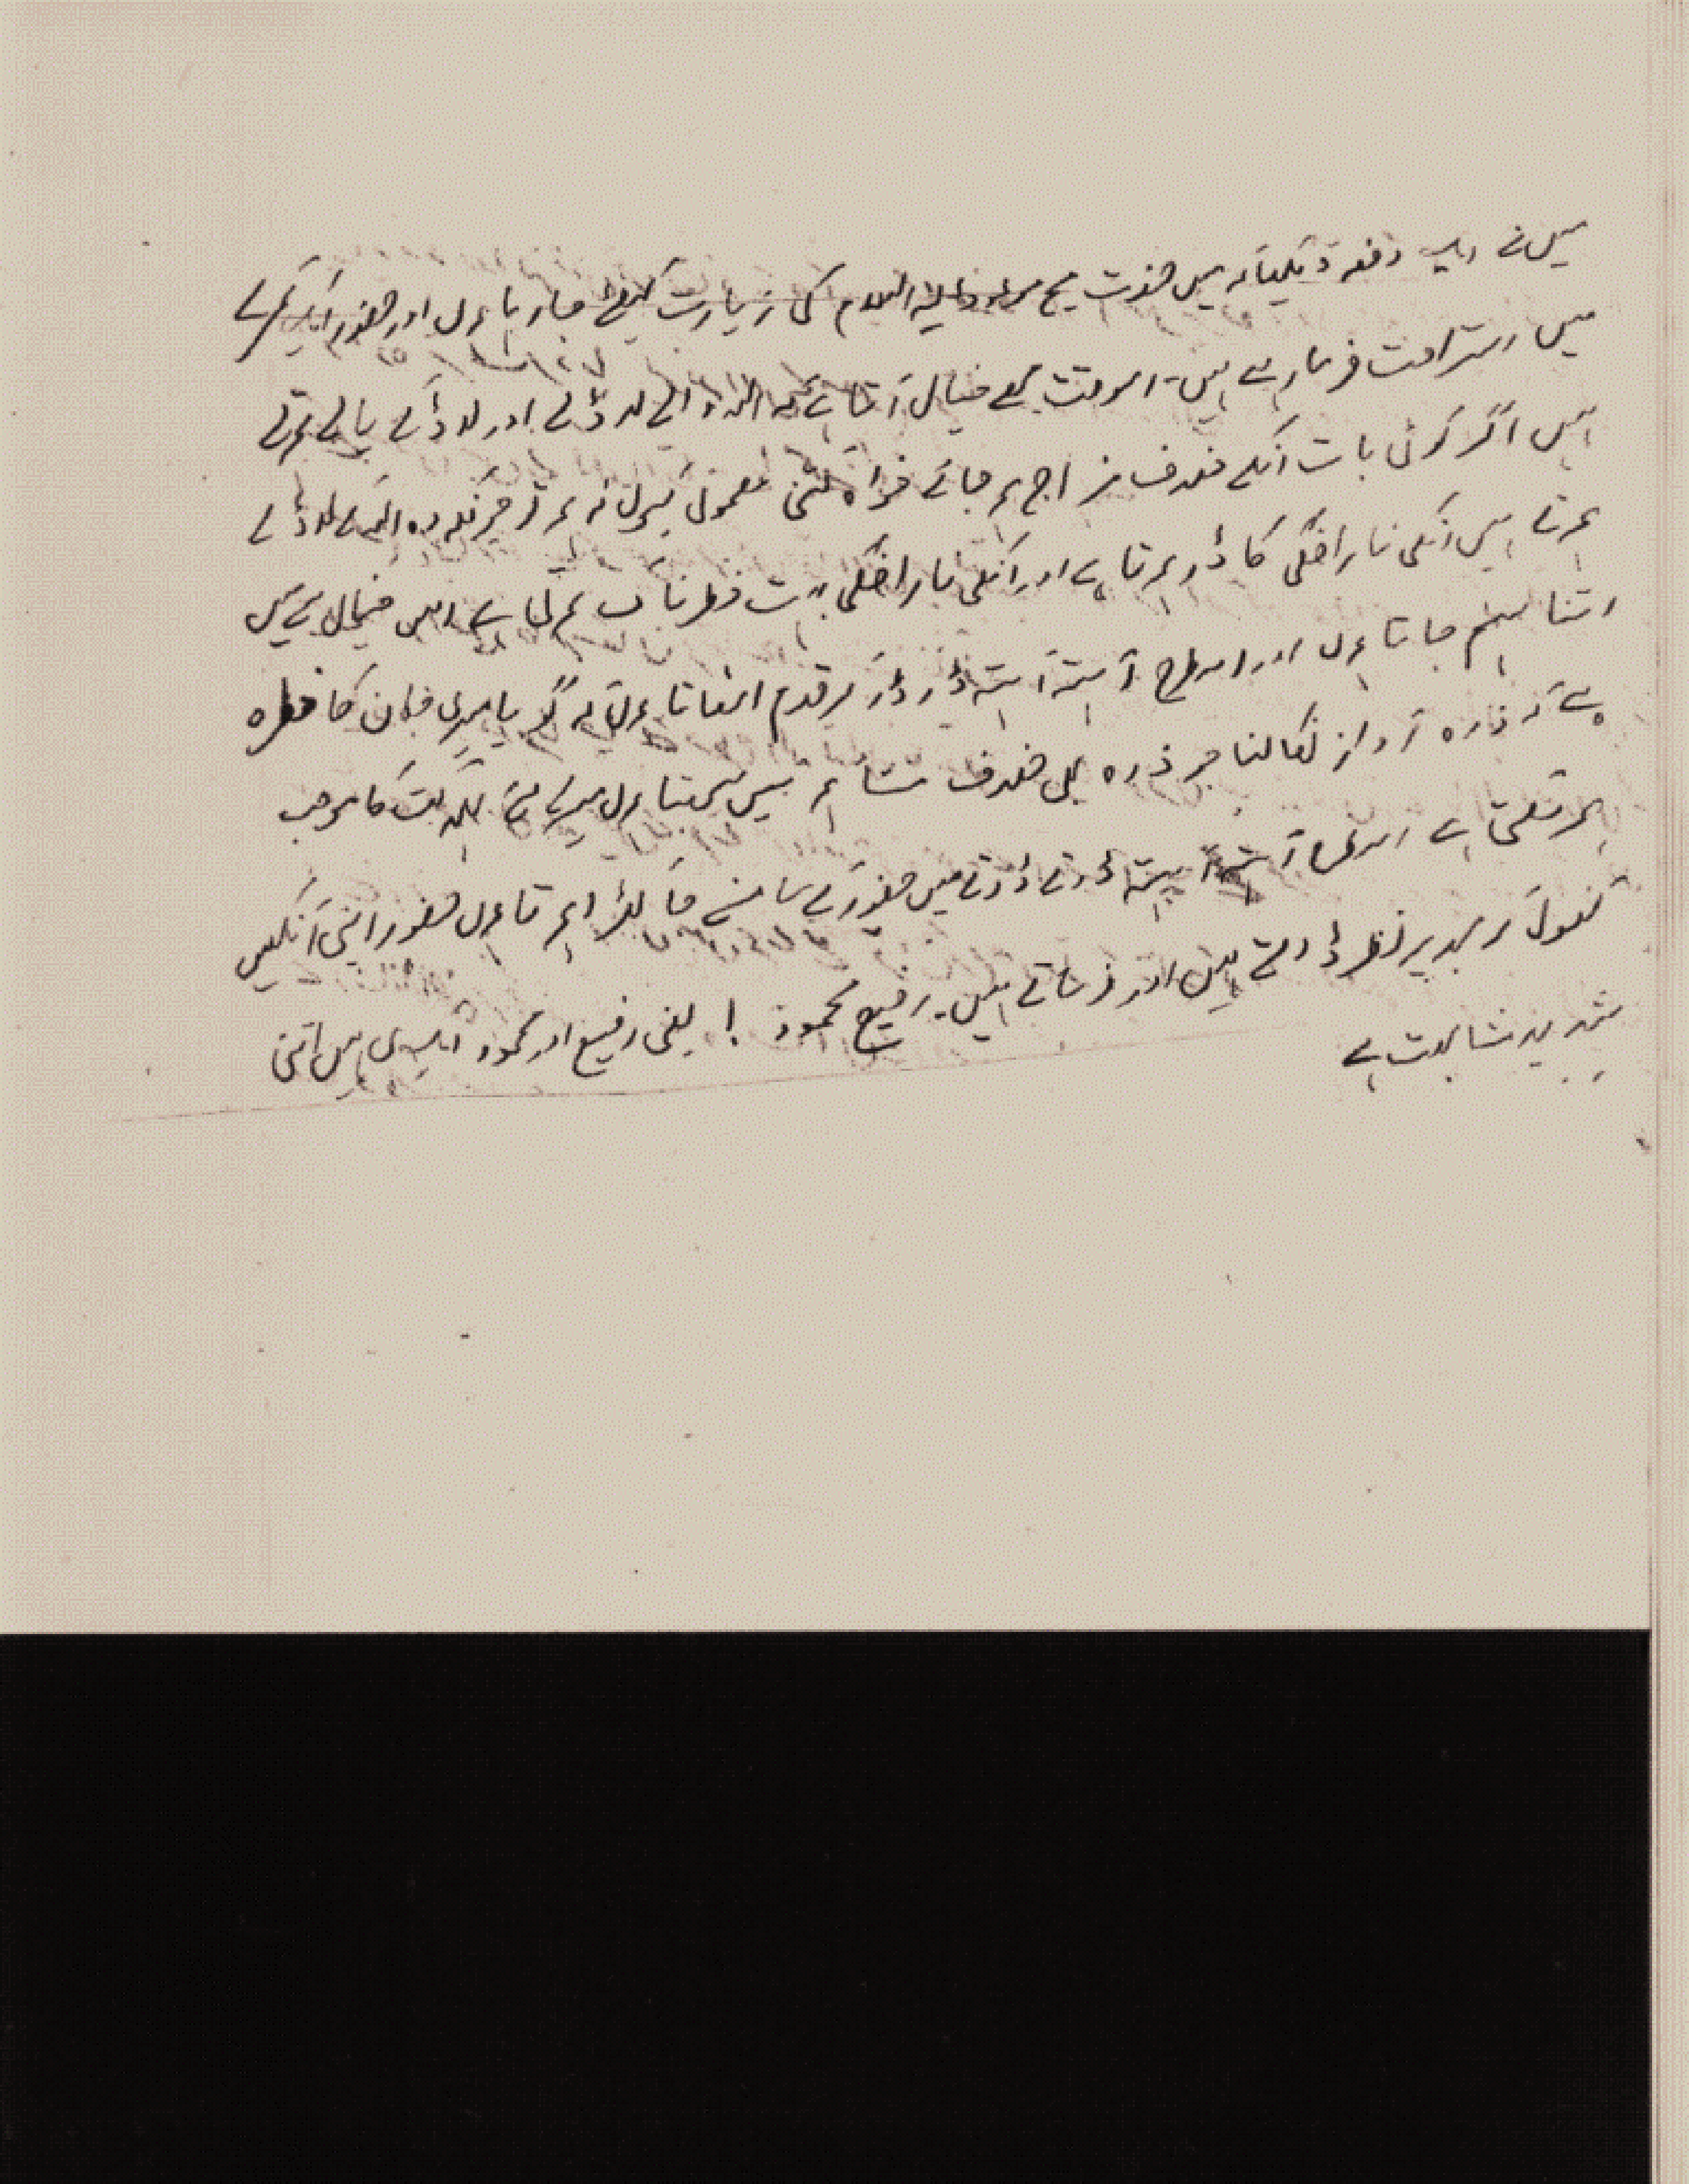 میں نے ایک دفعہ دیکھا کہ میں حضرت مسیح موعود علیہ السلام کی زیارت کیلئے جا رہا ہوں اور حضور ایک کمرے
میں استراحت فرما رہے ہیں۔ اسوقت مجھے خیال آتا ہے کہ اللہ والے لاڈلے اور لاڈ کے پالے ہوتے
ہیں اگر کوئی بات انکے خلاف مزاج ہو جائے خواہ کتنی معمولی کیوں نہ ہو تو چونکہ وہ اللہ کے لاڈلے
ہوتے ہیں انکی ناراضگی کا ڈر ہوتا ہے اور انکی ناراضگی بہت خطرناک ہوتی ہے اس خیال سے میں
اتنا سہم جاتا ہوں اور اسطرح آہستہ آہستہ ڈر ڈر کر قدم اٹھاتا ہوں کہ گویا میری جان کا خطرہ
ہے کہ ذرہ آواز نکالنا جو ذرہ بھی خلاف منشاء ہو میں سمجھتا ہوں میرے لئے ہلاکت کا موجب
ہو سکتی ہے اسطرح آہستہ آہستہ ڈرتے ڈرتے میں حضور کے سامنے جا کھڑا ہوتا ہوں حضور اپنی آنکھیں
کھول کر مجھ پر نظر ڈالتے ہیں اور فرماتے ہیں۔ رفیع محمود ! یعنی رفیع اور محمود ایک ہی ہیں اتنی
شدید مشابہت ہے